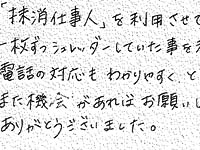 「抹消仕事人」を利用させて
一枚ずつシュレッダーしていた事を
電話の対応もわかりやすく、と
また機会があればお願いし
ありがとうございました。